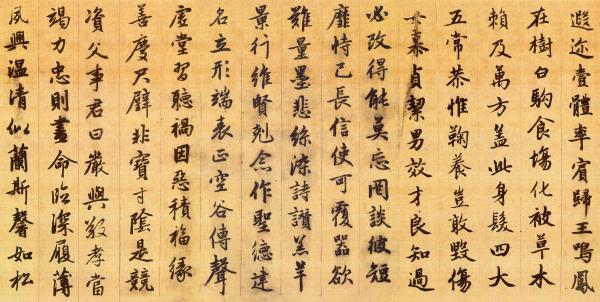 遐迩壹體率賓歸王鳴鳳
在樹白駒食場化被草木
賴及萬方蓋此身髮四大
五常恭惟鞠養豈敢毀傷
女慕貞潔男效才良知過
必改得能莫忘罔談彼短
靡恃己長信使可覆器欲
難量墨悲絲染詩讚羔羊
景行維賢剋念作聖德建
名立形端表正空谷傳聲
虛堂習聽禍因惡積福緣
善慶尺璧非寶寸陰是競
資父事君曰嚴與敬孝當
竭力忠則盡命臨深履薄
夙興溫清似蘭斯馨如松